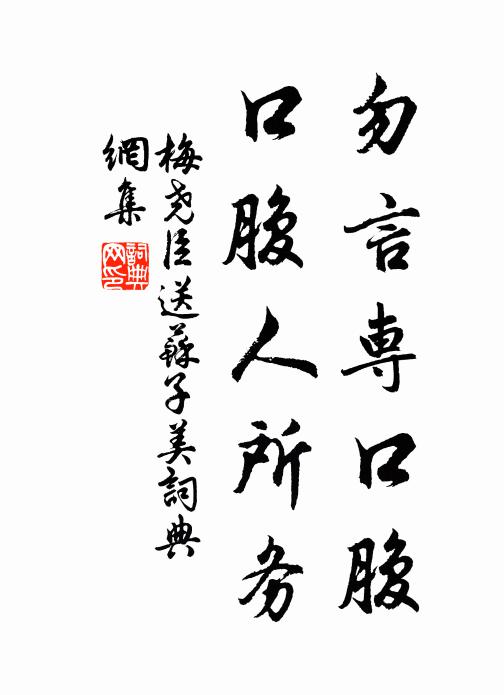 勿言専口腹
口腹人所务
梅尧臣送蘇子美詞典
網集
詞典
网印